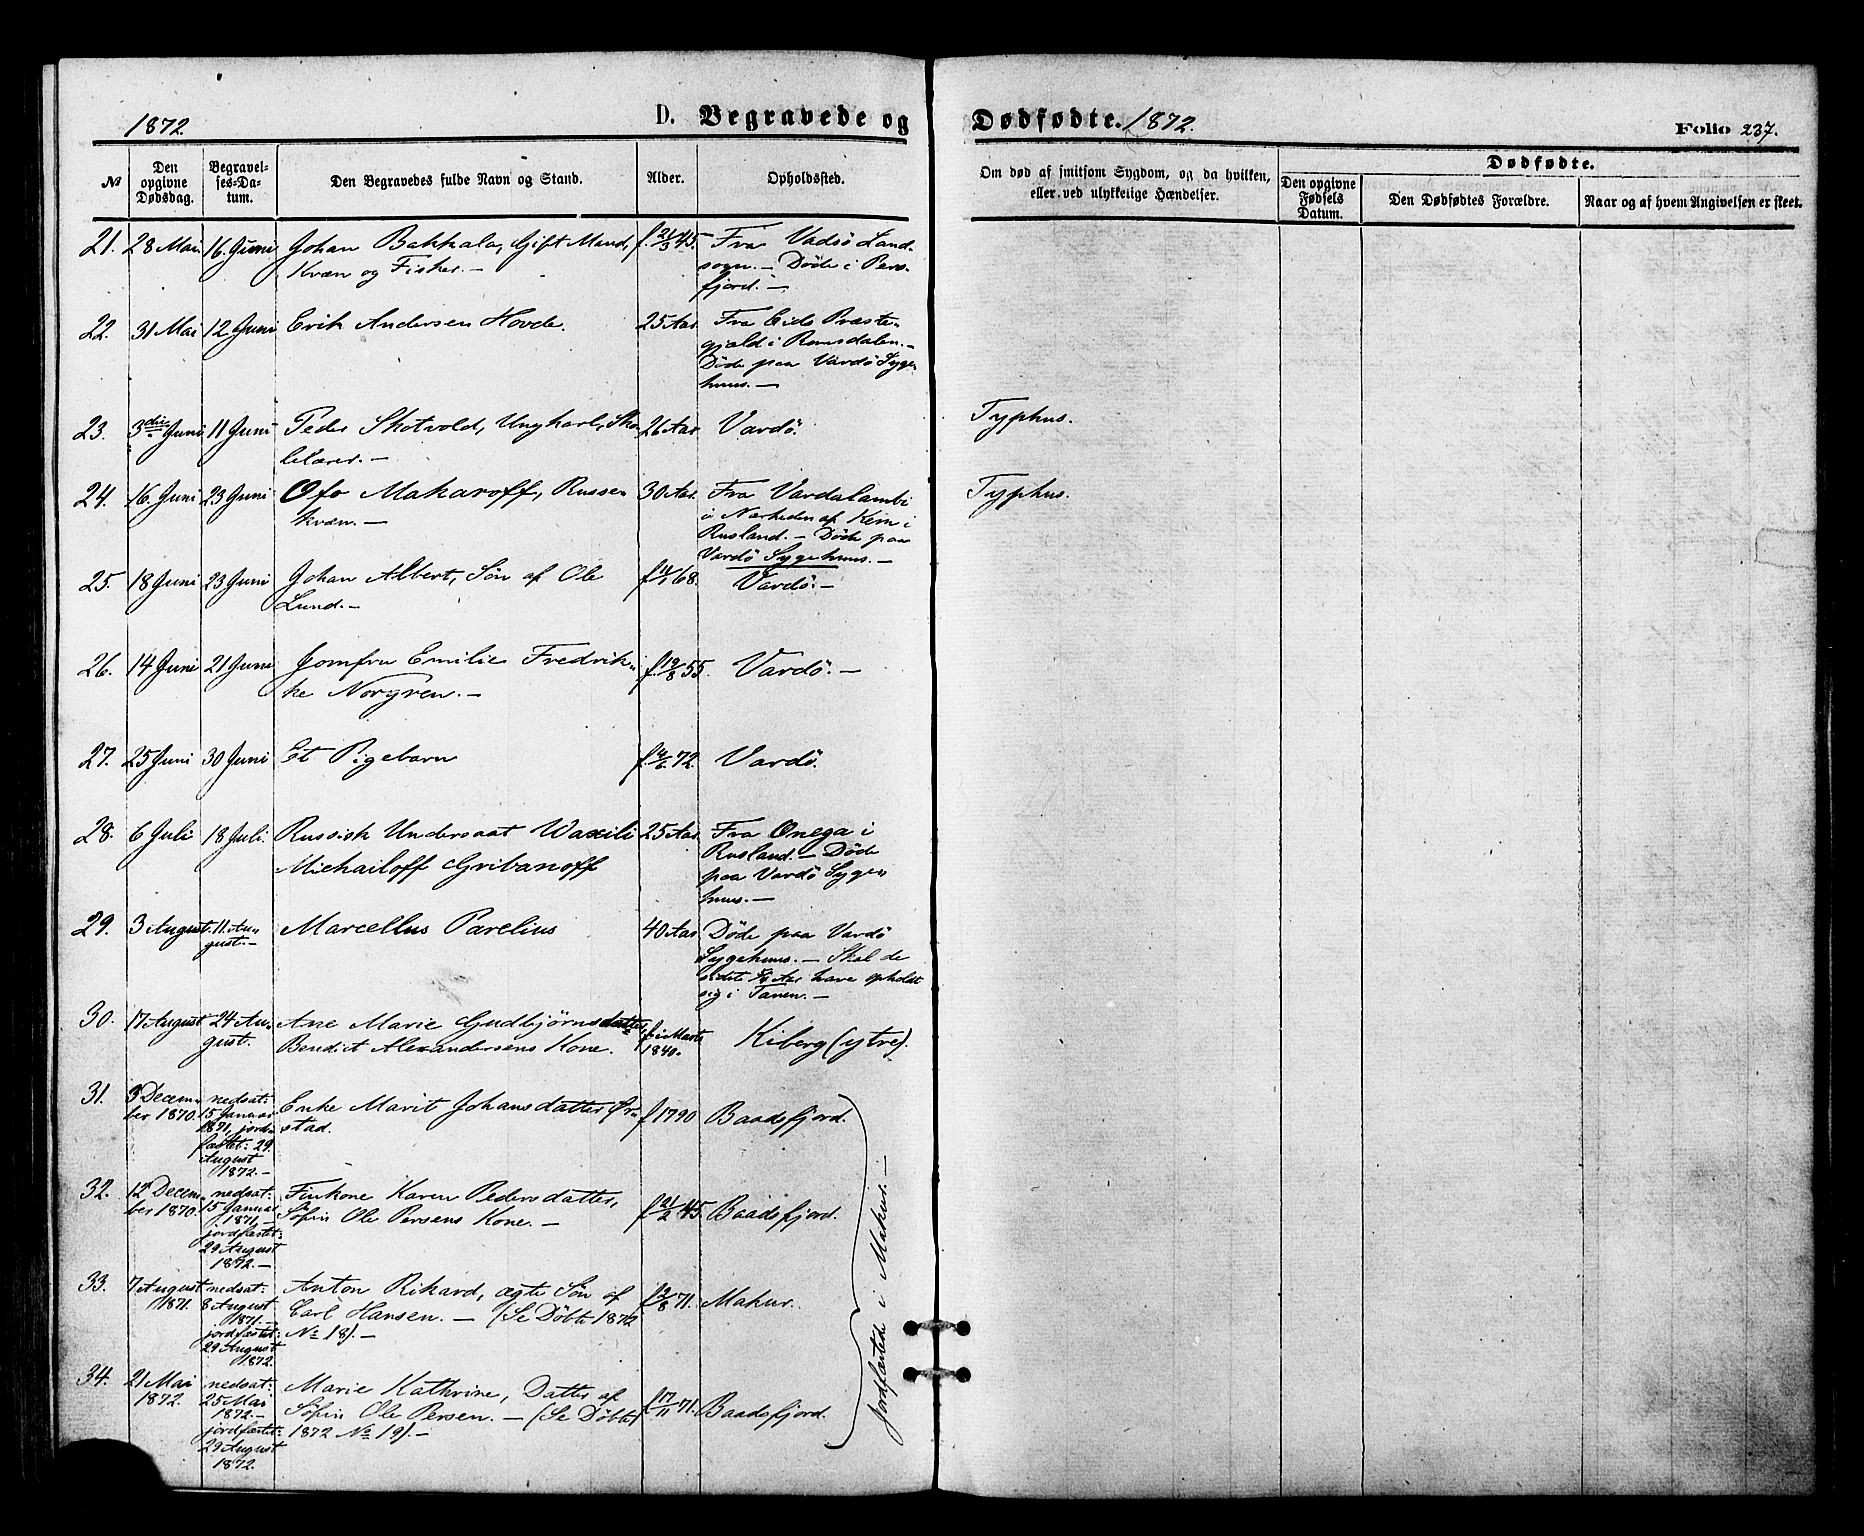 1872. D. Begravede og Dødfødte. 1872. Folio 237.
№ Den opgivne Dødsdag. Begravelses-Datum. Den Begravedes fulde Navn og Stand. Alder. Opholdssted. Om død af smitsom Sygdom, og da hvilken, eller ved ulykkelige Hændelser. Dødfødte. Den opgivne Fødsels Datum. Den Dødfødtes Forældre. Naar og af hvem Angivelsen er skeet.
21. 28 Mai 16. Juni Johan Bakkala, Gift Mand, f. 21/3 45. Fra Vadsö Land-
Kvæn og Fisker. — sogn. — Döde i Pers-
fjord. —
22. 31 Mai 12 Juni Erik Andersen Hovde. 25 Aar. Fra Eids Præste-
gjæld i Romsdalen. —
Döde paa Vardö Syge-
huus. —
23. 3die Juni 11 Juni Peder Skotvold, Ungkarl, Sko- 26 Aar. Vardö. Typhus.
lelærer. —
24. 16. Juni 23 Juni Ofo Makaroff, Russe- 30 Aar. Fra Vardalambi Typhus.
kvæn. — i Nærheden af Kem i
Rusland. — Döde paa
Vardö Sygehuus. —
25. 18 Juni 23 Juni Johan Albert, Sön af Ole f. 11/1 68. Vardö. —
Lund. —
26. 14 Juni 21 Juni Jomfru Emilie Fredrik- f. 19/8 55. Vardö. —
ke Norgren. —
27. 25 Juni 30 Juni Et Pigebarn f. 4/6 72. Vardö.
28. 6 Juli 18 Juli. Russisk Undersaat Waxili 25 Aar. Fra Onega i
Michailoff Gribanoff Rusland. — Döde
paa Vardö Syge-
huus. —
29. 3 August. 11. Au- Marcellus Parelius 40 Aar Döde paa Vardö
gust. — Sygehuus. — Skal de
sidste Aar have opholdt
sig i Tanen. —
30. 17 August 24 Au- Ane Marie Gudbjörnsdatter, f. i Marts Kiberg (ytre).
gust. Bendict Alexandersens Kone. 1840.
31. 3 Decem- nedsat: Enke Marit Johansdatter Ör- f. 1790 Baadsfjord.
ber 1870. 15 Januar stad.
1871, jord-
fæstet: 29.
August
1872. —
32. 12 Decem- nedsat: Finkone Karen Pedersdatter, f. 21/2 45. Baadsfjord.
ber 1870. 15 Januar Söfin Ole Persens Kone. —
1871, —
jordfæstet:
29 August
1872. —
33. 7 August nedsat: Anton Rikard, ægte Sön af f. 12/8 71. Makur.
1871. 8 August Carl Hansen. — (Se Döbte 1872
1871. — № 18). —
jordfæstet:
29 August
1872.
34. 21 Mai nedsat: Marie Kathrine, Datter af f. 17/11 71. Baadsfjord.
1872. 25 Mai Söfin Ole Persen. — (Se Döbte
1872. — 1872 № 19). —
jordfæstet:
29 August
1872.
jordfæstede i Makur. —